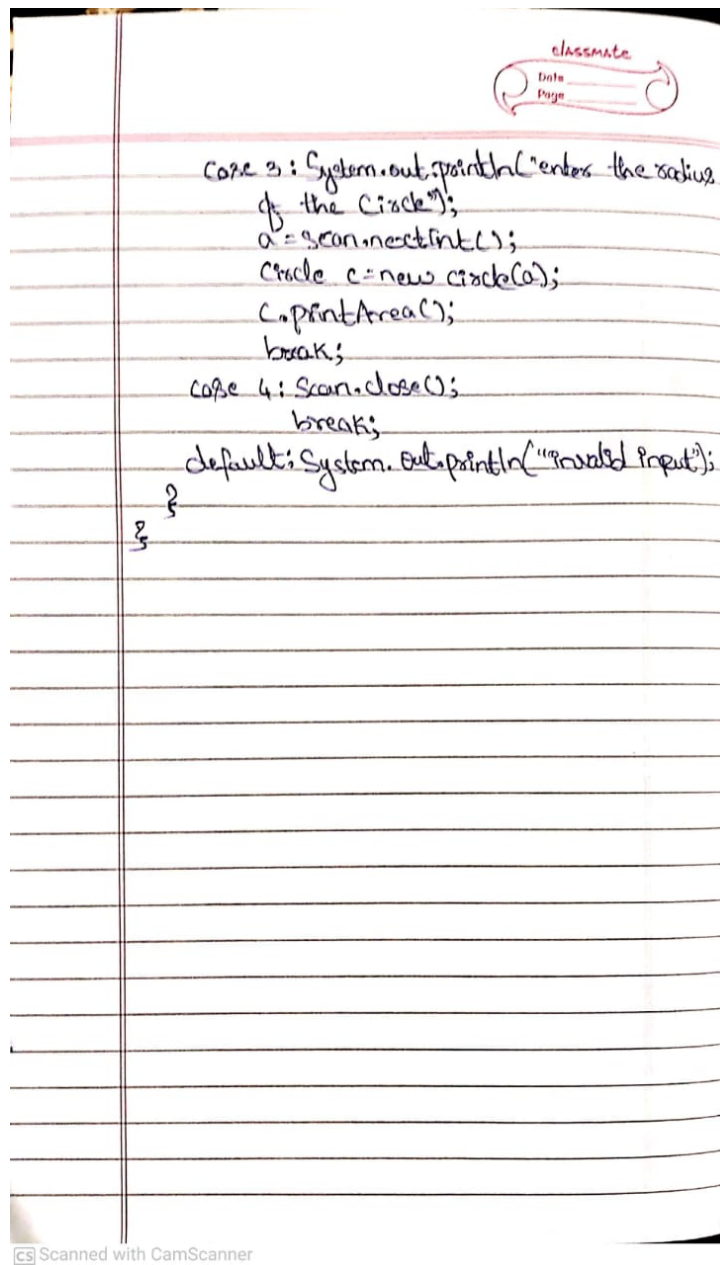 classmate
Date
Page
case 3 : System.out.println("enter the radius
of the Circle");
a = scan.nextInt();
Circle c=new circle(a);
c.printArea();
break;
case 4 : Scan.close();
break;
default: System.out.println("invalid input");
}
}
CS Scanned with CamScanner